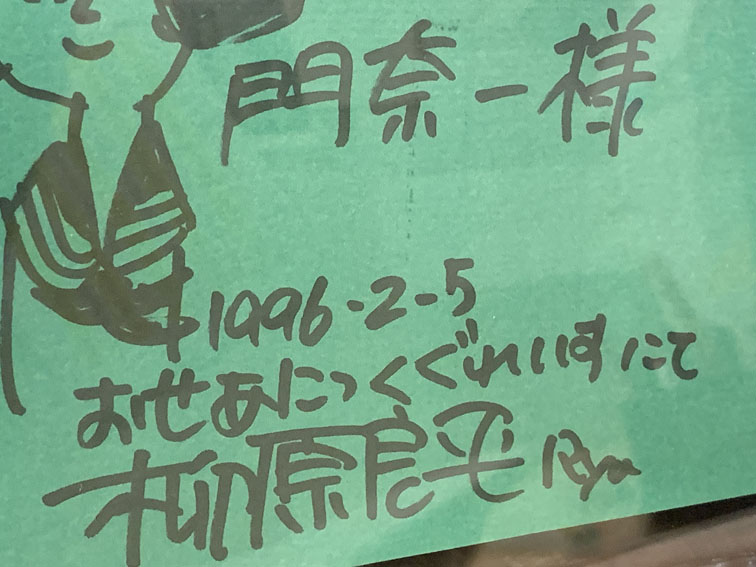 門奈一様
1996-2-5
おせあにっくぐれいすにて
柳原良平 Ryo